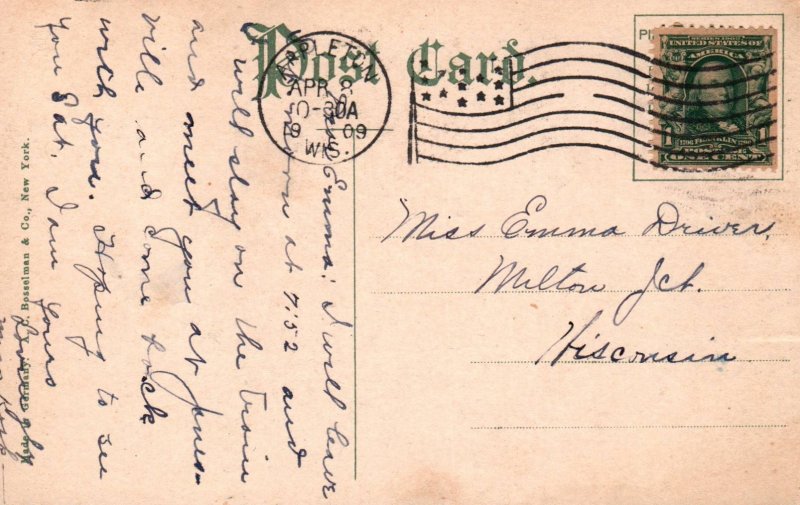 Post Card.
APPLETON
APR 8
10-30A
1909
WIS.
SERIES 1902
UNITED STATES OF
AMERICA
1706 FRANKLIN 1790
POSTAGE
1 ONE CENT 1
Miss Emma Driver,
Milton Jct.
Wisconsin
Emma: I will leave
at 7:52 and
will stay on the train
and meet you at Janes-
ville and come back
with you. Hoping to see
you Sat. I am yours
Made in Germany. Bosselman & Co., New York.